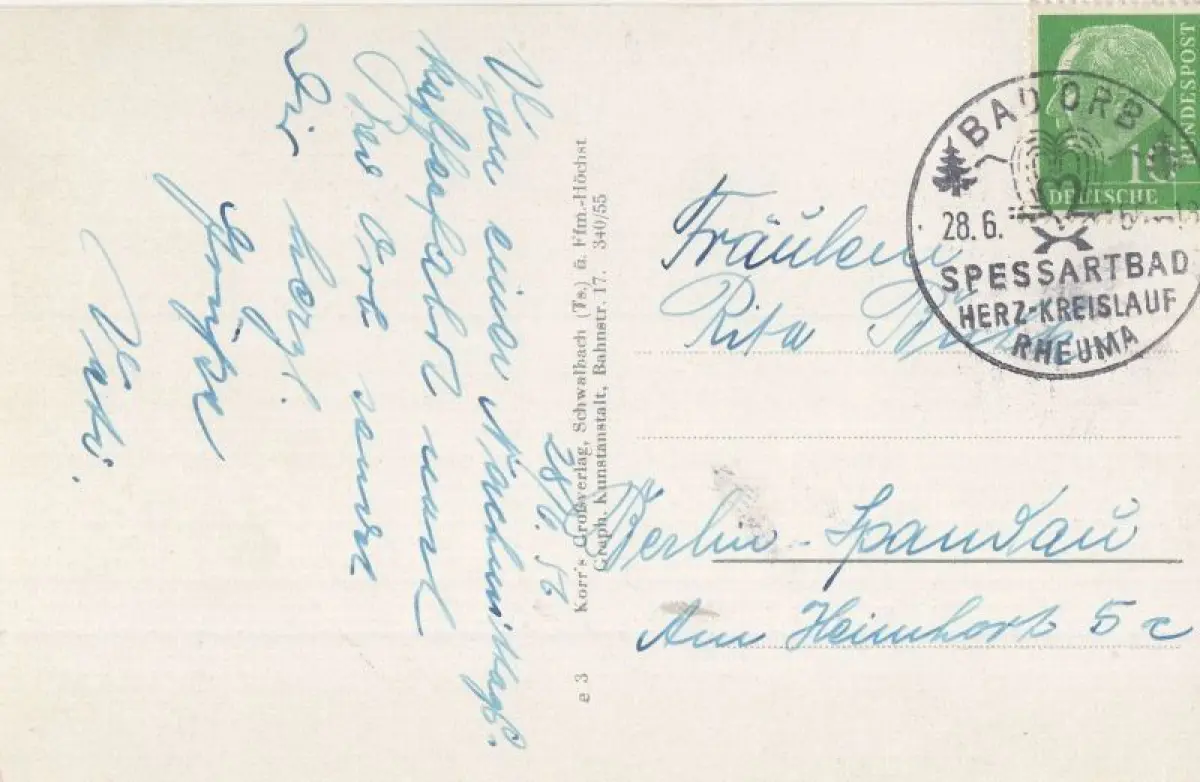 28/6. 56
Von einer Nachmittags-
kaffeefahrt nach
Bad Orb sendet
Dir herzl.
Grüße
Vati.
e 3 Korr's Großverlag, Schwalbach (Ts.) ü. Ffm.-Höchst
Graph. Kunstanstalt, Bahnstr. 17. 340/55
DEUTSCHE
BUNDESPOST
BAD ORB
28.6.
SPESSARTBAD
HERZ-KREISLAUF
RHEUMA
Fräulein
Rita
Berlin-Spandau
Am Heimhort 5c